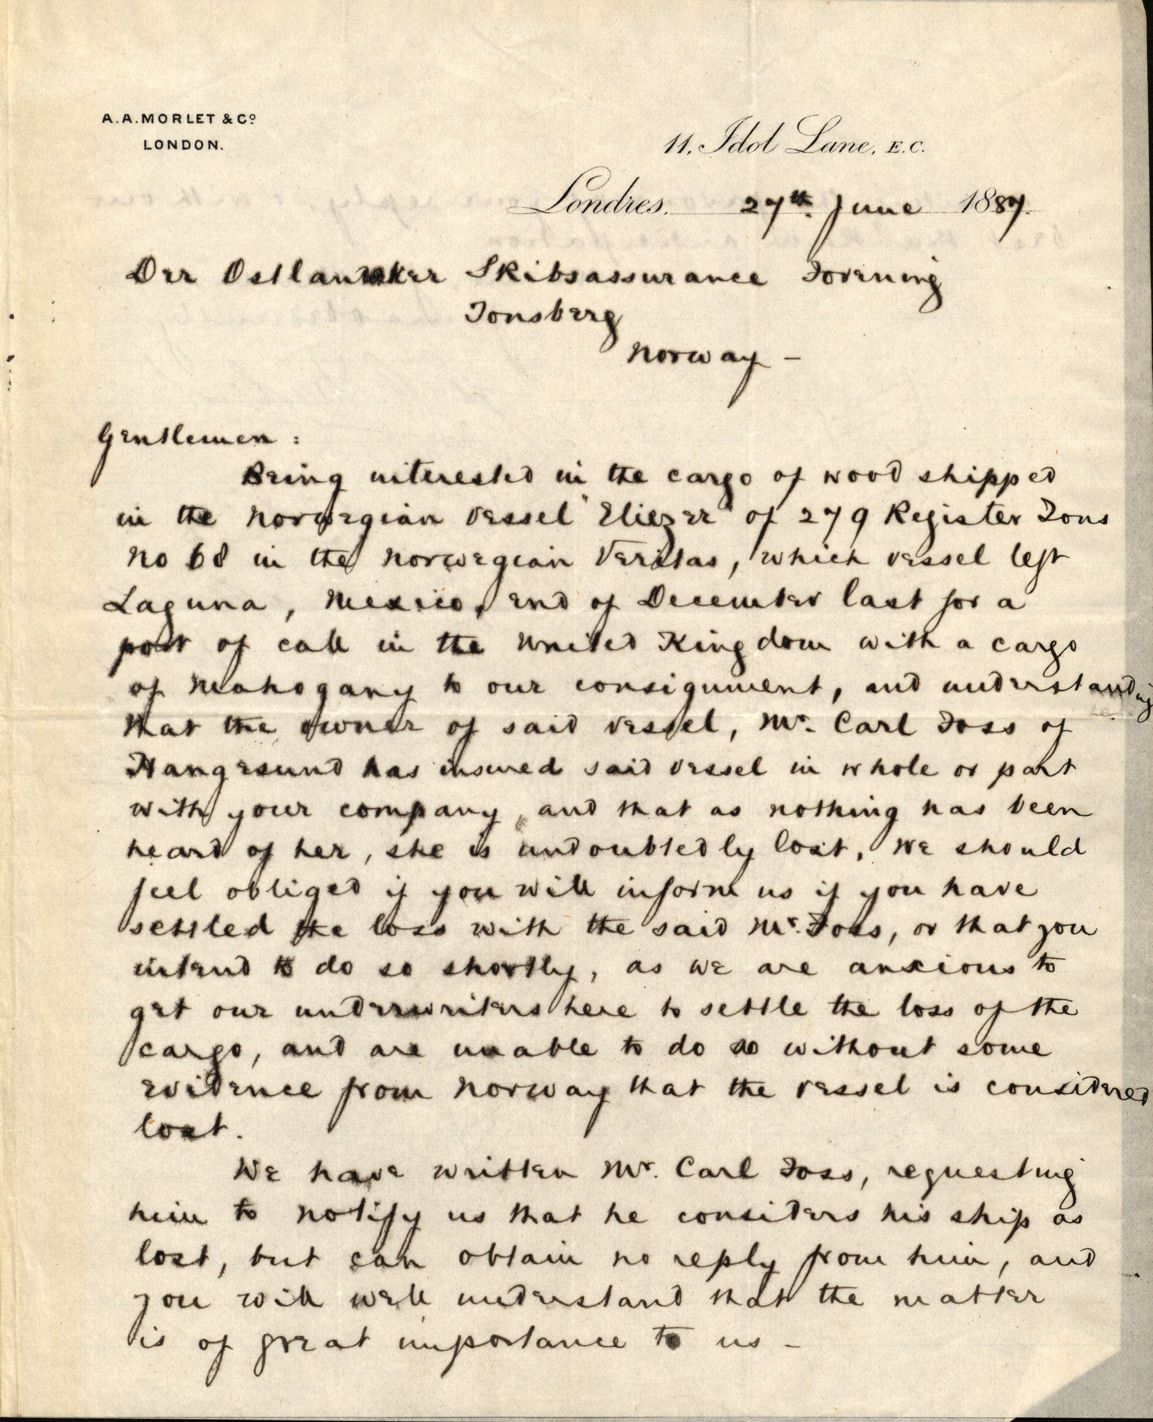 A. A. MORLET & Cº
LONDON.
11, Idol Lane, E.C.
Londres, 27th June 1887.
Der Ostlandske Skibsassurance Forening
Tonsberg
Norway –
Gentlemen :
Being interested in the cargo of wood shipped
in the Norwegian vessel "Eliezer" of 279 Register Tons
No 68 in the Norwegian Veritas, which vessel left
Laguna, Mexico, end of December last for a
port of call in the United Kingdom with a cargo
of Mahogany to our consignment, and understanding
that the owner of said vessel, Mr. Carl Foss of
Haugesund has insured said vessel in whole or part
with your company, and that as nothing has been
heard of her, she is undoubtedly lost, We should
feel obliged if you will inform us if you have
settled the loss with the said Mr. Foss, or that you
intend to do so shortly, as we are anxious to
get our underwriters here to settle the loss of the
cargo, and are unable to do so without some
evidence from Norway that the vessel is considered
lost.
We have written Mr. Carl Foss, requesting
him to notify us that he considers his ship as
lost, but can obtain no reply from him, and
you will well understand that the matter
is of great importance to us –